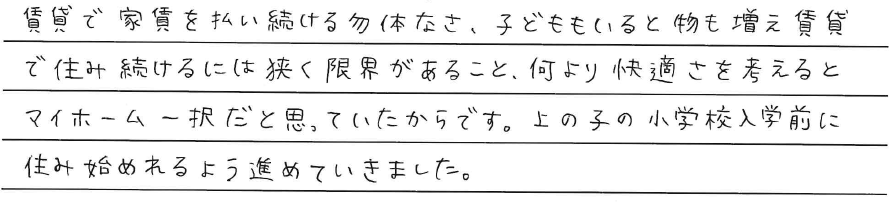 賃貸で家賃を払い続ける勿体なさ、子どももいると物も増え賃貸
で住み続けるには狭く限界があること、何より快適さを考えると
マイホーム一択だと思っていたからです。上の子の小学校入学前に
住み始めれるよう進めていきました。